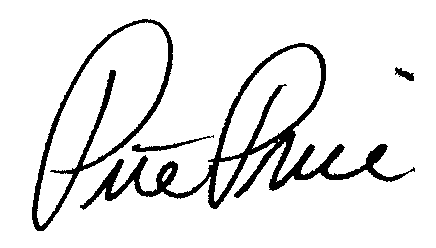 Pete Price